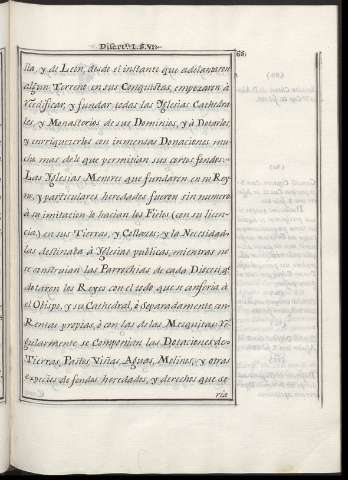 Discrⁿ. I. §. VII.
68.
lla, y de Leon, desde el instante que adelantaron
algun Terreno en sus Conquistas, empezaron à
reedificar, y fundar todas las Yglesias Cathedra
les, y Monasterios de sus Dominios, y à Dotarlos
y enrriquezerlos con inmensas Donaciones mu
cho mas de lo que permitian sus cortos fondos.
Las Yglesias Menores que fundaron en su Rey
no, y particulares heredados fueron sin numero
à su imitacion lo hacian los Fieles (con su licen
cia) en sus Tierras, y Collazos; y la Necesidad
las destinaba à Yglesias publicas, mientras no
se construian las Parrochias de cada Diocesi
dotaron los Reyes con el todo que se conferia à
el Obispo, y su Cathedral, ò Separadamente con
Rentas propias, ò con las de las Mezquitas. Re
gularmente se Componian las Dotaciones de
Tierras, Pastos, Viñas, Aguas, Molinos, y otras
especies de fondos heredados, y derechos que se
ria